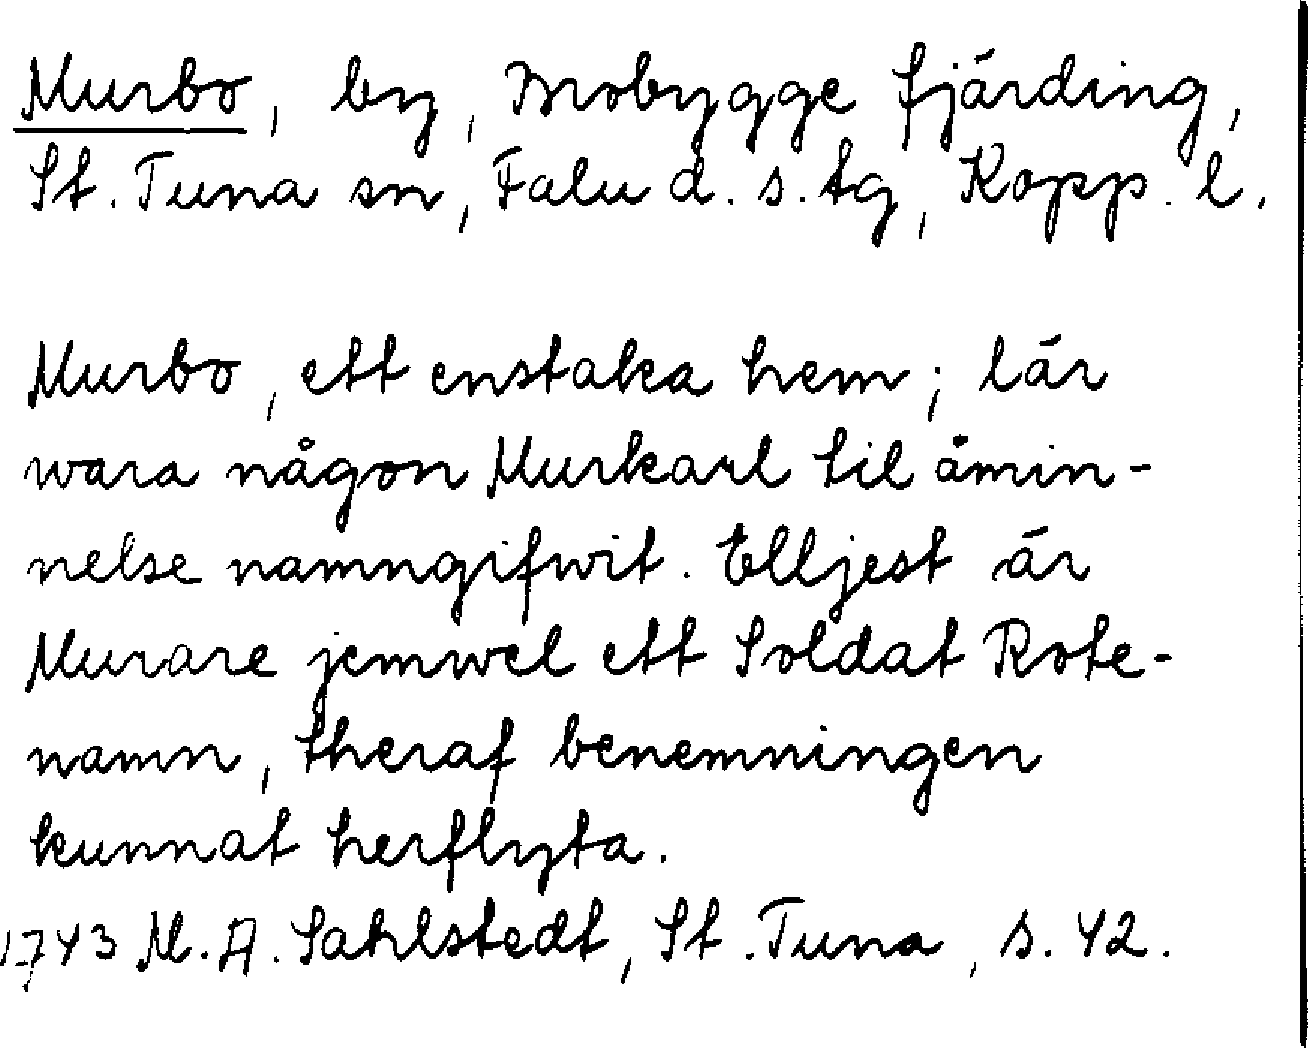 Murbo, by, Mobygge fjärding,
St. Tuna sn, Falu d. s. tg, Kopp. l.
Murbo, ett enstaka hem; lär
wara någon Murkarl til åmin-
nelse namngifwit. Elljest är
Murare jemwel ett Soldat Rote-
namn, theraf benemningen
kunnat herflyta.
1743 M. A. Sahlstedt, St. Tuna, s. 42.